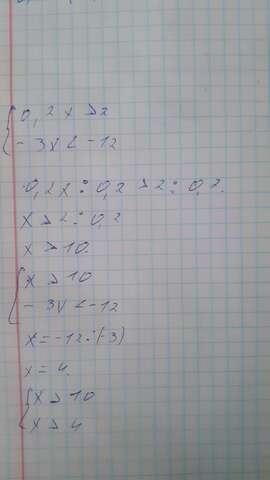 0,2x > 2
- 3x < -12
0,2x : 0,2 > 2 : 0,2.
x > 2 : 0,2
x > 10.
x > 10
- 3x < -12
x = -12 : (-3)
x = 4.
x > 10
x > 4